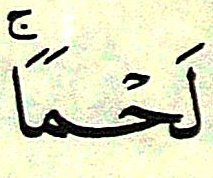 لَحۡمٗاۚ